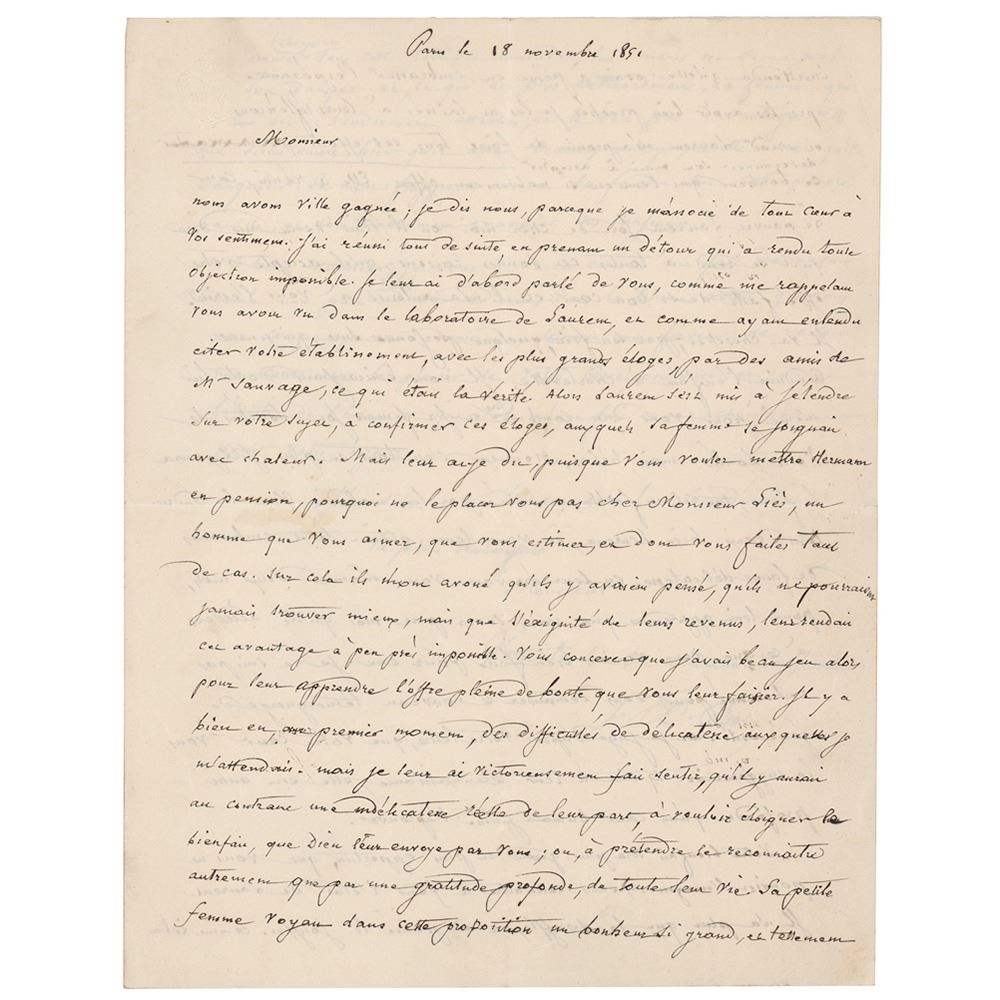 Paris le 18 novembre 1851
Monsieur
nous avons ville gagnée; je dis nous, parceque je m'associe de tout cœur à
vos sentimens. J'ai réuni tout de suite, en prenant un détour qui a rendu toute
objection impossible. Je leur ai d'abord parlé de vous, comme me rappelant
vous avoir vu dans le laboratoire de Laurent, et comme ayant entendu
citer votre établissement, avec les plus grands éloges, par des amis de
Mr Sauvage, ce qui était la vérité. Alors Laurent s'est mis à s'étendre
sur votre sujet, à confirmer ces éloges, auxquels sa femme se joignait
avec chaleur. Mais leur ai-je dit, puisque vous voulez mettre Hermann
en pension, pourquoi ne le placez vous pas chez Monsieur Liès, un
homme que vous aimez, que vous estimez, et dont vous faites tant
de cas. Sur cela ils m'ont avoué qu'ils y avaient pensé, qu'ils ne pourraient
jamais trouver mieux, mais que l'éxiguité de leurs revenus, leur rendait
cet avantage à peu près impossible. Vous concevez que j'avais beau jeu alors
pour leur apprendre l'offre pleine de bonté que vous leur faisiez. Il y a
bien eu, premier moment, des difficultés de délicatesse auxquelles je
m'attendais. mais je leur ai victorieusement fait sentir, qu'il y aurait
au contraire une indélicatesse réelle de leur part, à vouloir éloigner le
bienfait, que Dieu leur envoye par vous; ou, à prétendre le reconnaître
autrement que par une gratitude profonde, de toute leur vie. Sa petite
femme voyant dans cette proposition un bonheur si grand, et tellement